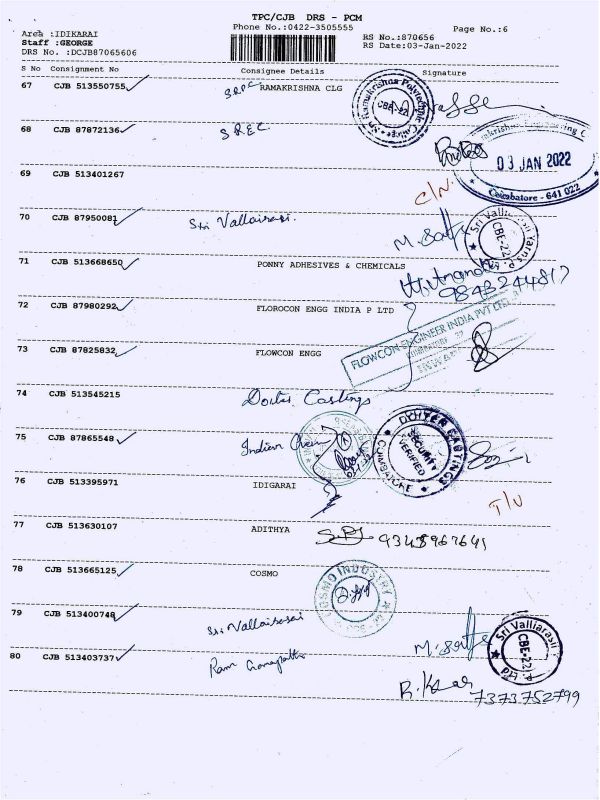 TPC/CJB DRS - PCM
Phone No.:0422-3505555
Page No.:6
Area :IDIKARAI
Staff :GEORGE
DRS No. :DCJB87065606
RS No.:870656
RS Date:03-Jan-2022
S No Consignment No Consignee Details Signature
67 CJB 513550755 SRPC RAMAKRISHNA CLG
68 CJB 87872136 SREC
03 JAN 2022
Coimbatore - 641 022
69 CJB 513401267 C/N
70 CJB 87950081 Sri Vallairasi
CBE-22
71 CJB 513668650 PONNY ADHESIVES & CHEMICALS
9843244817
72 CJB 87980292 FLOROCON ENGG INDIA P LTD
FLOWCON ENGINEER INDIA PVT LTD
73 CJB 87825832 FLOWCON ENGG
74 CJB 513545215 Castings
75 CJB 87865548 Indian
SECURITY
VERIFIED
COIMBATORE
76 CJB 513395971 IDIGARAI T/U
77 CJB 513630107 ADITHYA
78 CJB 513665125 COSMO
COSMO INDUSTRY
79 CJB 513400748 Sri Vallairasai
Sri Valliarasii
CBE-22
80 CJB 513403737 Ram
R.
7373752799